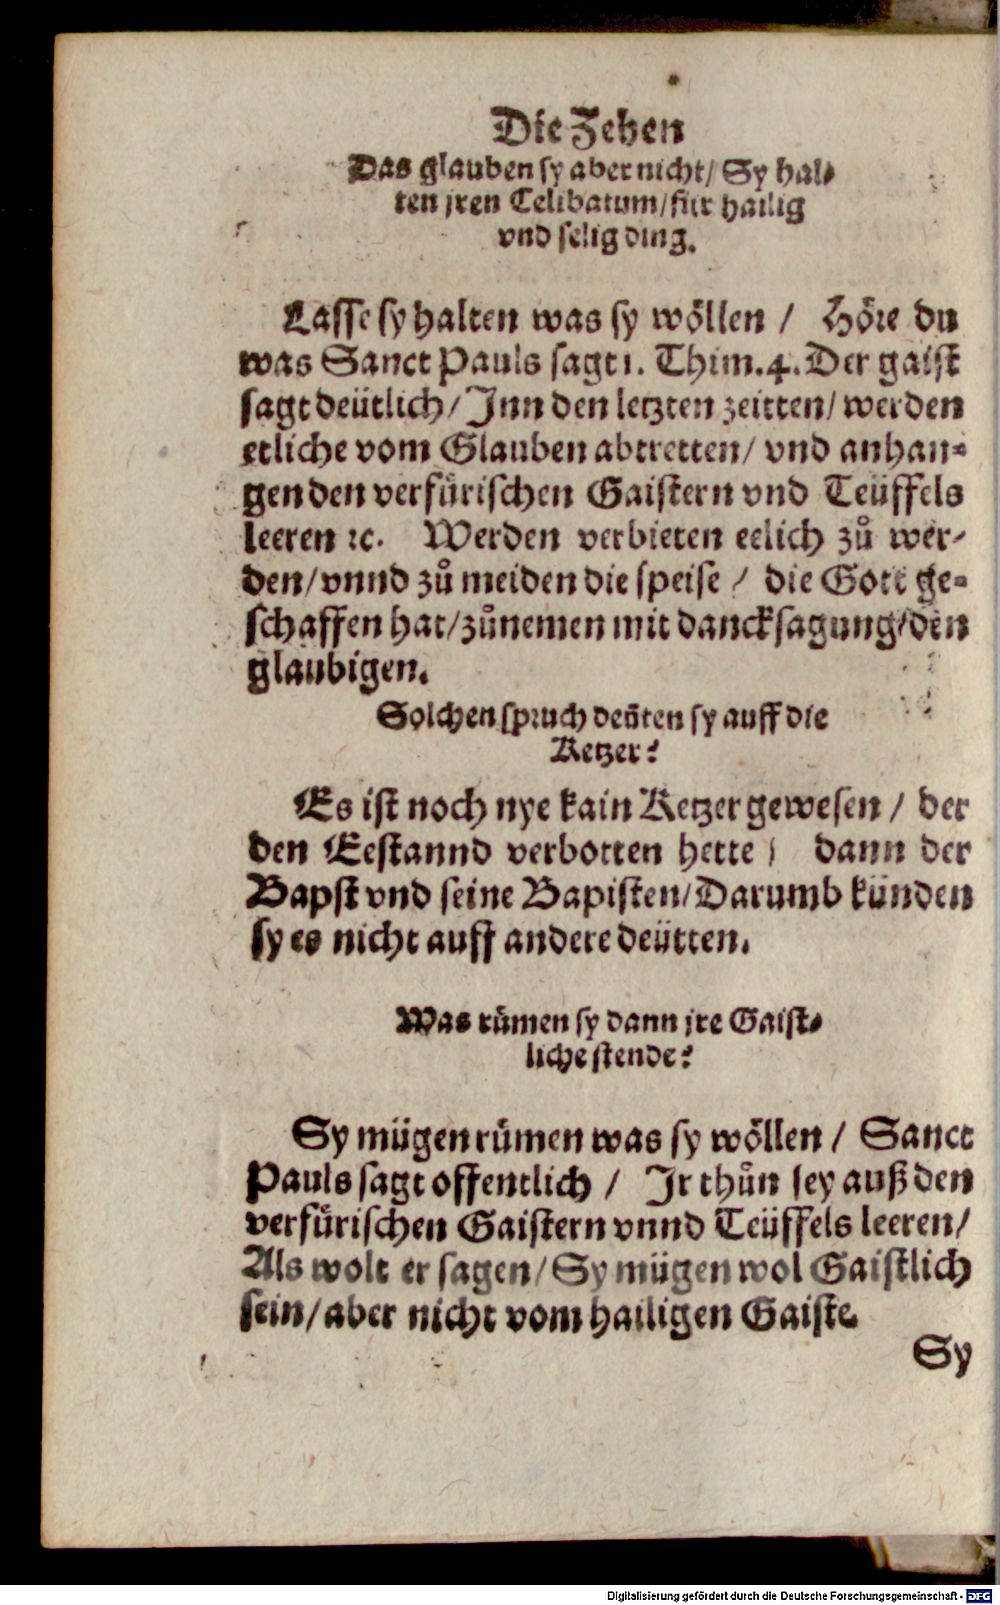 Die Zehen
Das glauben sy aber nicht/ Sy hal⸗
ten jren Celibatum/für hailig
vnd selig ding.
Lasse sy halten was sy wöllen / Höre du
was Sanct Pauls sagt 1. Thim.4. Der gaist
sagt deütlich/ Jnn den letzten zeitten/ werden
etliche vom Glauben abtretten/ vnd anhan⸗
gen den verfürischen Gaistern vnd Teüffels
leeren ꝛc. Werden verbieten eelich zů wer⸗
den/vnnd zů meiden die speise / die Gott ge⸗
schaffen hat/zůnemen mit dancksagung/den
glaubigen.
Solchen spruch deüten sy auff die
Ketzer?
Es ist noch nye kain Ketzer gewesen / der
den Eestannd verbotten hette / dann der
Bapst vnd seine Bapisten/Darumb künden
sy es nicht auff andere deütten.
Was rümen sy dann jre Gaist⸗
liche stende?
Sy mügen rümen was sy wöllen / Sanct
Pauls sagt offentlich / Jr thůn sey auß den
verfürischen Gaistern vnnd Teüffels leeren/
Als wolt er sagen/Sy mügen wol Gaistlich
sein/aber nicht vom hailigen Gaiste.
Sy
Digitalisierung gefördert durch die Deutsche Forschungsgemeinschaft - DFG